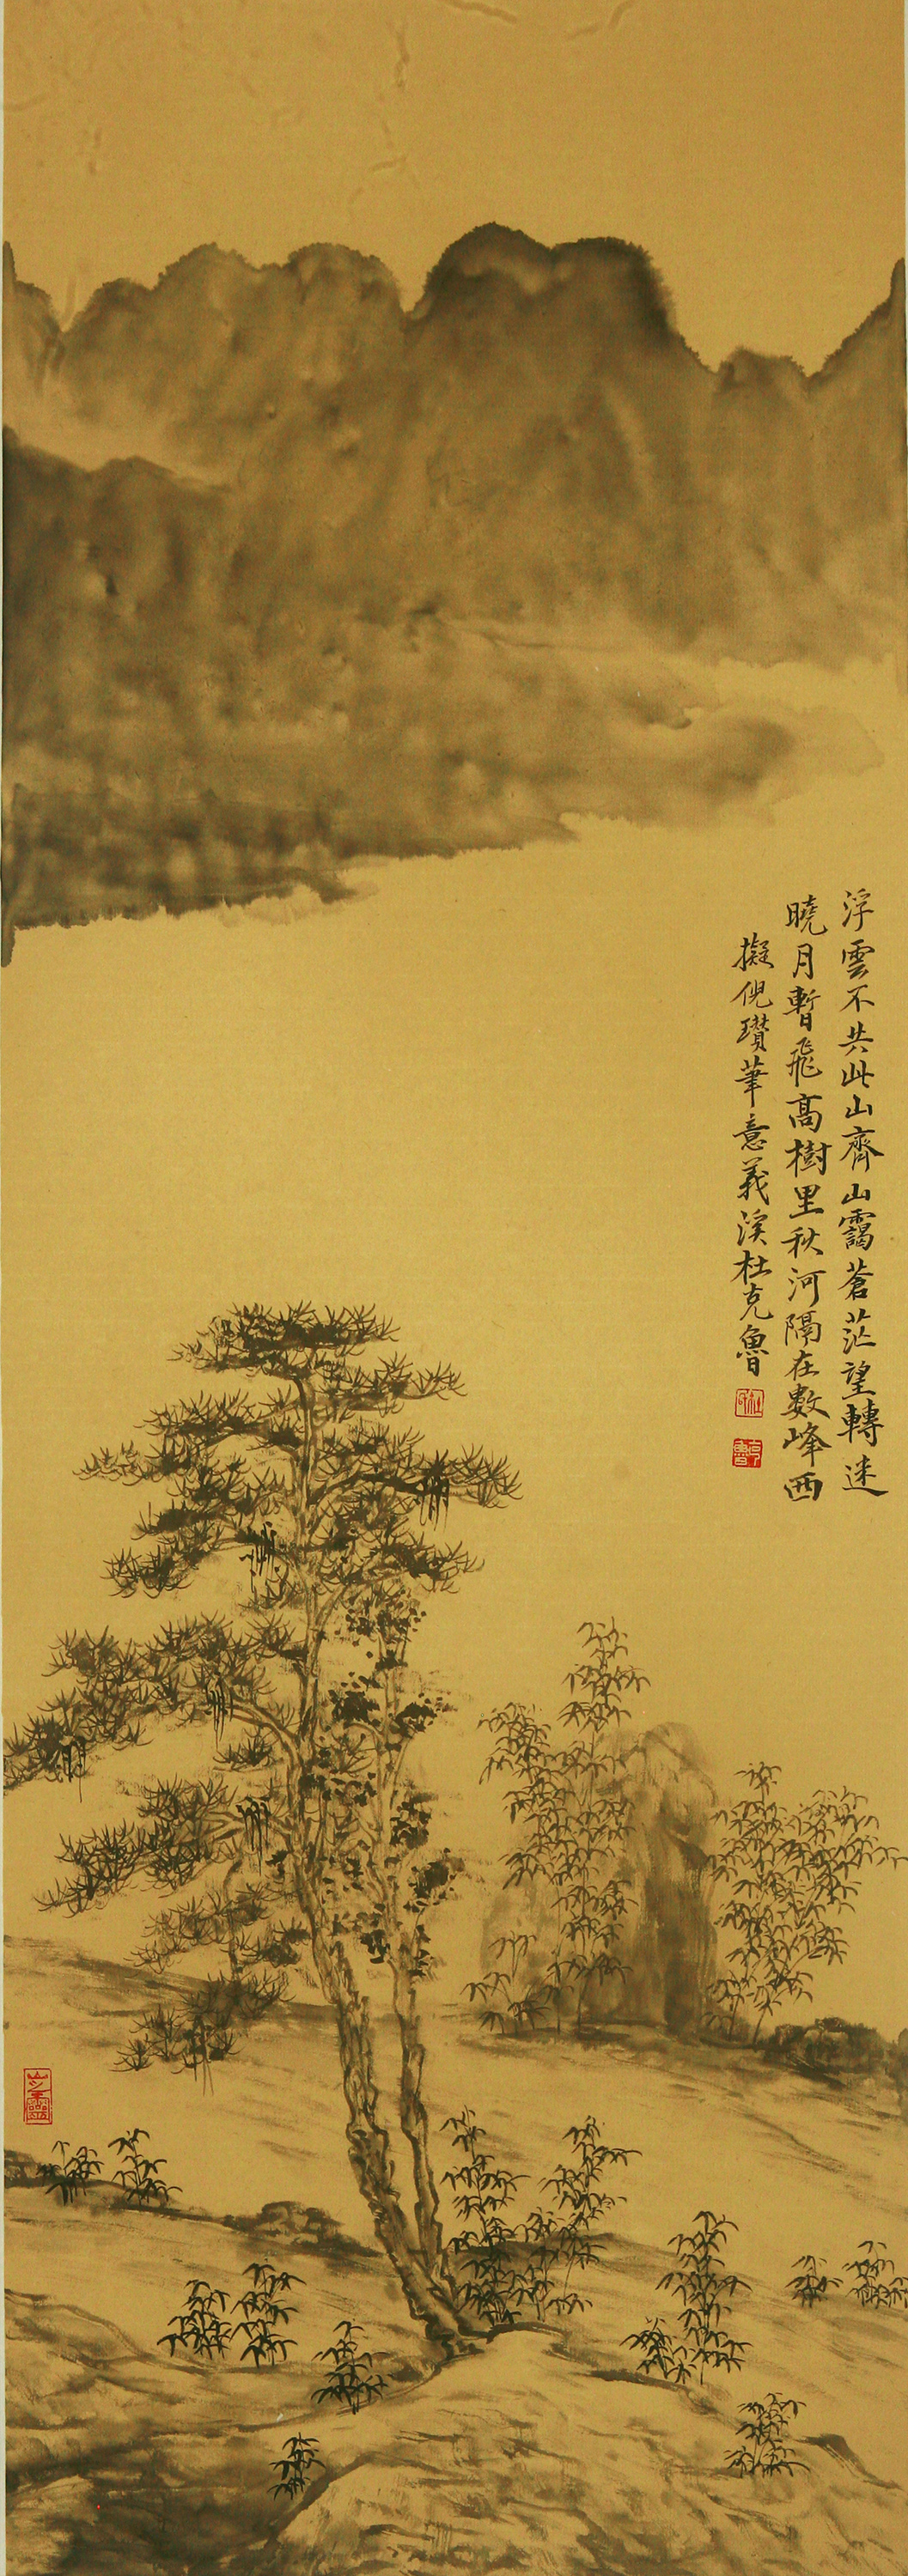 浮雲不共此山齊山靄蒼茫望轉迷
曉月暫飛高樹里秋河隔在數峰西
擬倪瓚筆意義溪杜克魯